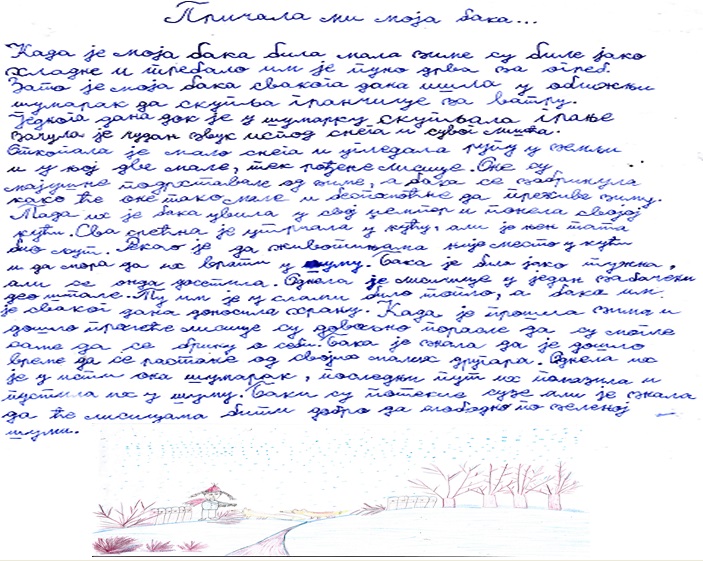 Причала ми моја бака...
Када је моја бака била мала зиме су биле јако
хладне и требало им је пуно дрва за огрев.
Зато је моја бака свакога дана ишла у оближњи
шумарак да скупља гранчице за ватру.
Једнога дана док је у шумарку скупљала грање
зачула је чудан звук испод снега и сувог лишћа.
Откопала је мало снега и угледала рупу у земљи
и у њој две мале, тек рођене лисице. Оне су
мајушне подрхтавале од зиме, а бака се забринула
како ће оне тако мале и беспомоћне да преживе зиму.
Тада их је бака увила у свој џемпер и понела својој
кући. Сва срећна је утрчала у кућу, али је њен тата
био љут. Рекао је да животињама није место у кући
и да мора да их врати у шуму. Бака је била јако тужна,
али се онда досетила. Однела је лисице у један забачени
део штале. Ту им је у слами било топло, а бака им
је сваког дана доносила храну. Када је прошла зима и
дошло пролеће лисице су довољно порасле да су могле
саме да се брину о себи. Бака је знала да је дошло
време да се растане од својих малих другара. Однела их
је у исти онај шумарак, последњи пут их помазила и
пустила их у шуму. Баки су потекле сузе али је знала
да ће лисицама бити добро да слободно по зеленој
шуми.